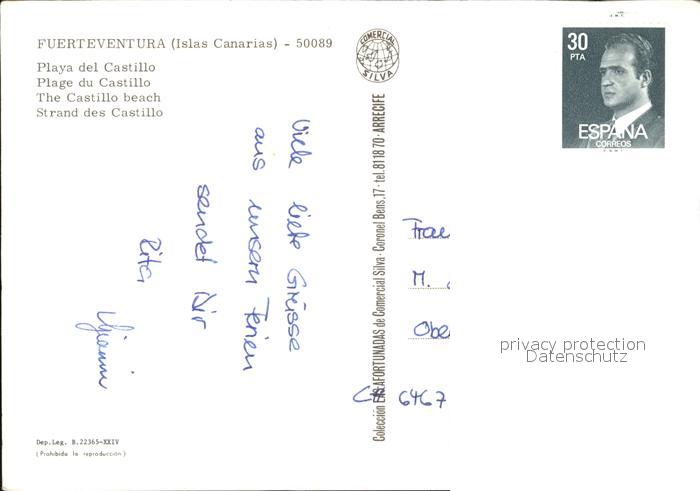 FUERTEVENTURA (Islas Canarias) - 50089
Playa del Castillo
Plage du Castillo
The Castillo beach
Strand des Castillo
COMERCIAL SILVA
30
PTA
ESPAÑA
CORREOS
Viele liebe Grüsse
aus unsern Ferien
sendet Dir
Rita
Colección ISLAS AFORTUNADAS de Comercial Silva · Coronel Bens, 17 · tel. 81 18 70 · ARRECIFE
Frau
M.
Ober
CH 6467
privacy protection
Datenschutz
Dep.Leg. B.22365-XXIV
(Prohibida la reproducción)